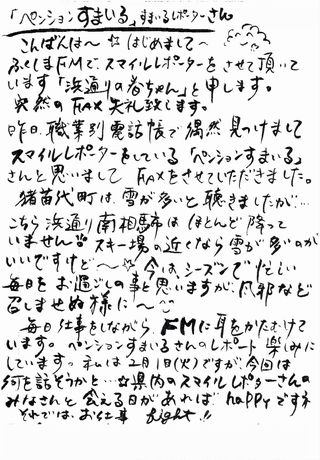 「ペンションすまいる」すまいるレポーターさん
こんばんは～☆はじめまして～
ふくしまFMで、スマイルレポーターをさせて頂いて
います「浜通りの春ちゃん」と申します。
突然のFAX失礼致します。
昨日、職業別電話帳で偶然見つけまして
スマイルレポーターをしている「ペンションすまいる」
さんと思いまして FAXをさせていただきました。
猪苗代町は、雪が多いと聴きましたが…
こちら浜通り南相馬市はほとんど降って
いません スキー場の近くなら雪が多いのが
いいですけど～☆ 今は、シーズンで忙しい
毎日をお過ごしの事と思いますが、風邪など
召しませぬ様に～
毎日仕事をしながら、FMに耳をかたむけて
います。ペンションすまいるさんのレポート楽しみに
しています。私は2月1日(火)ですが、今回は
何を話そうかと…☆県内のスマイルレポーターさんの
みなさんと会える日があれば happyですネ
それでは、お仕事 fight!!